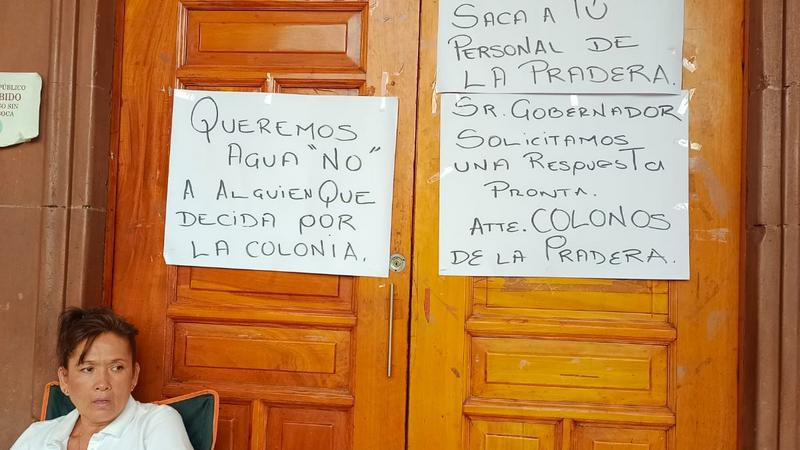 PÚBLICO
BIDO
O SIN
BOCA
QUEREMOS
AGUA "NO"
A ALGUIEN QUE
DECIDA POR
LA COLONIA.
SACA A TÚ
PERSONAL DE
LA PRADERA.
SR. GOBERNADOR
SOLICITAMOS
UNA RESPUESTA
PRONTA.
ATTE. COLONOS
DE LA PRADERA.